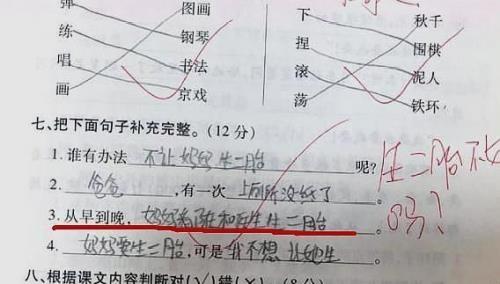 弹 图画 下 秋千
练 钢琴 捏 围棋
唱 书法 滚 泥人
画 京戏 荡 铁环
七、把下面句子补充完整。(12分)
1. 谁有办法 不让妈妈生二胎 呢?
生二胎不好吗?
2. 爸爸 ,有一次 上厕所没纸了 。
3. 从早到晚, 妈妈都 和 生二胎
4. 妈妈要生二胎 ,可是 我不想让她生 。
八、根据课文内容判断对(√)错(×)。(8分)